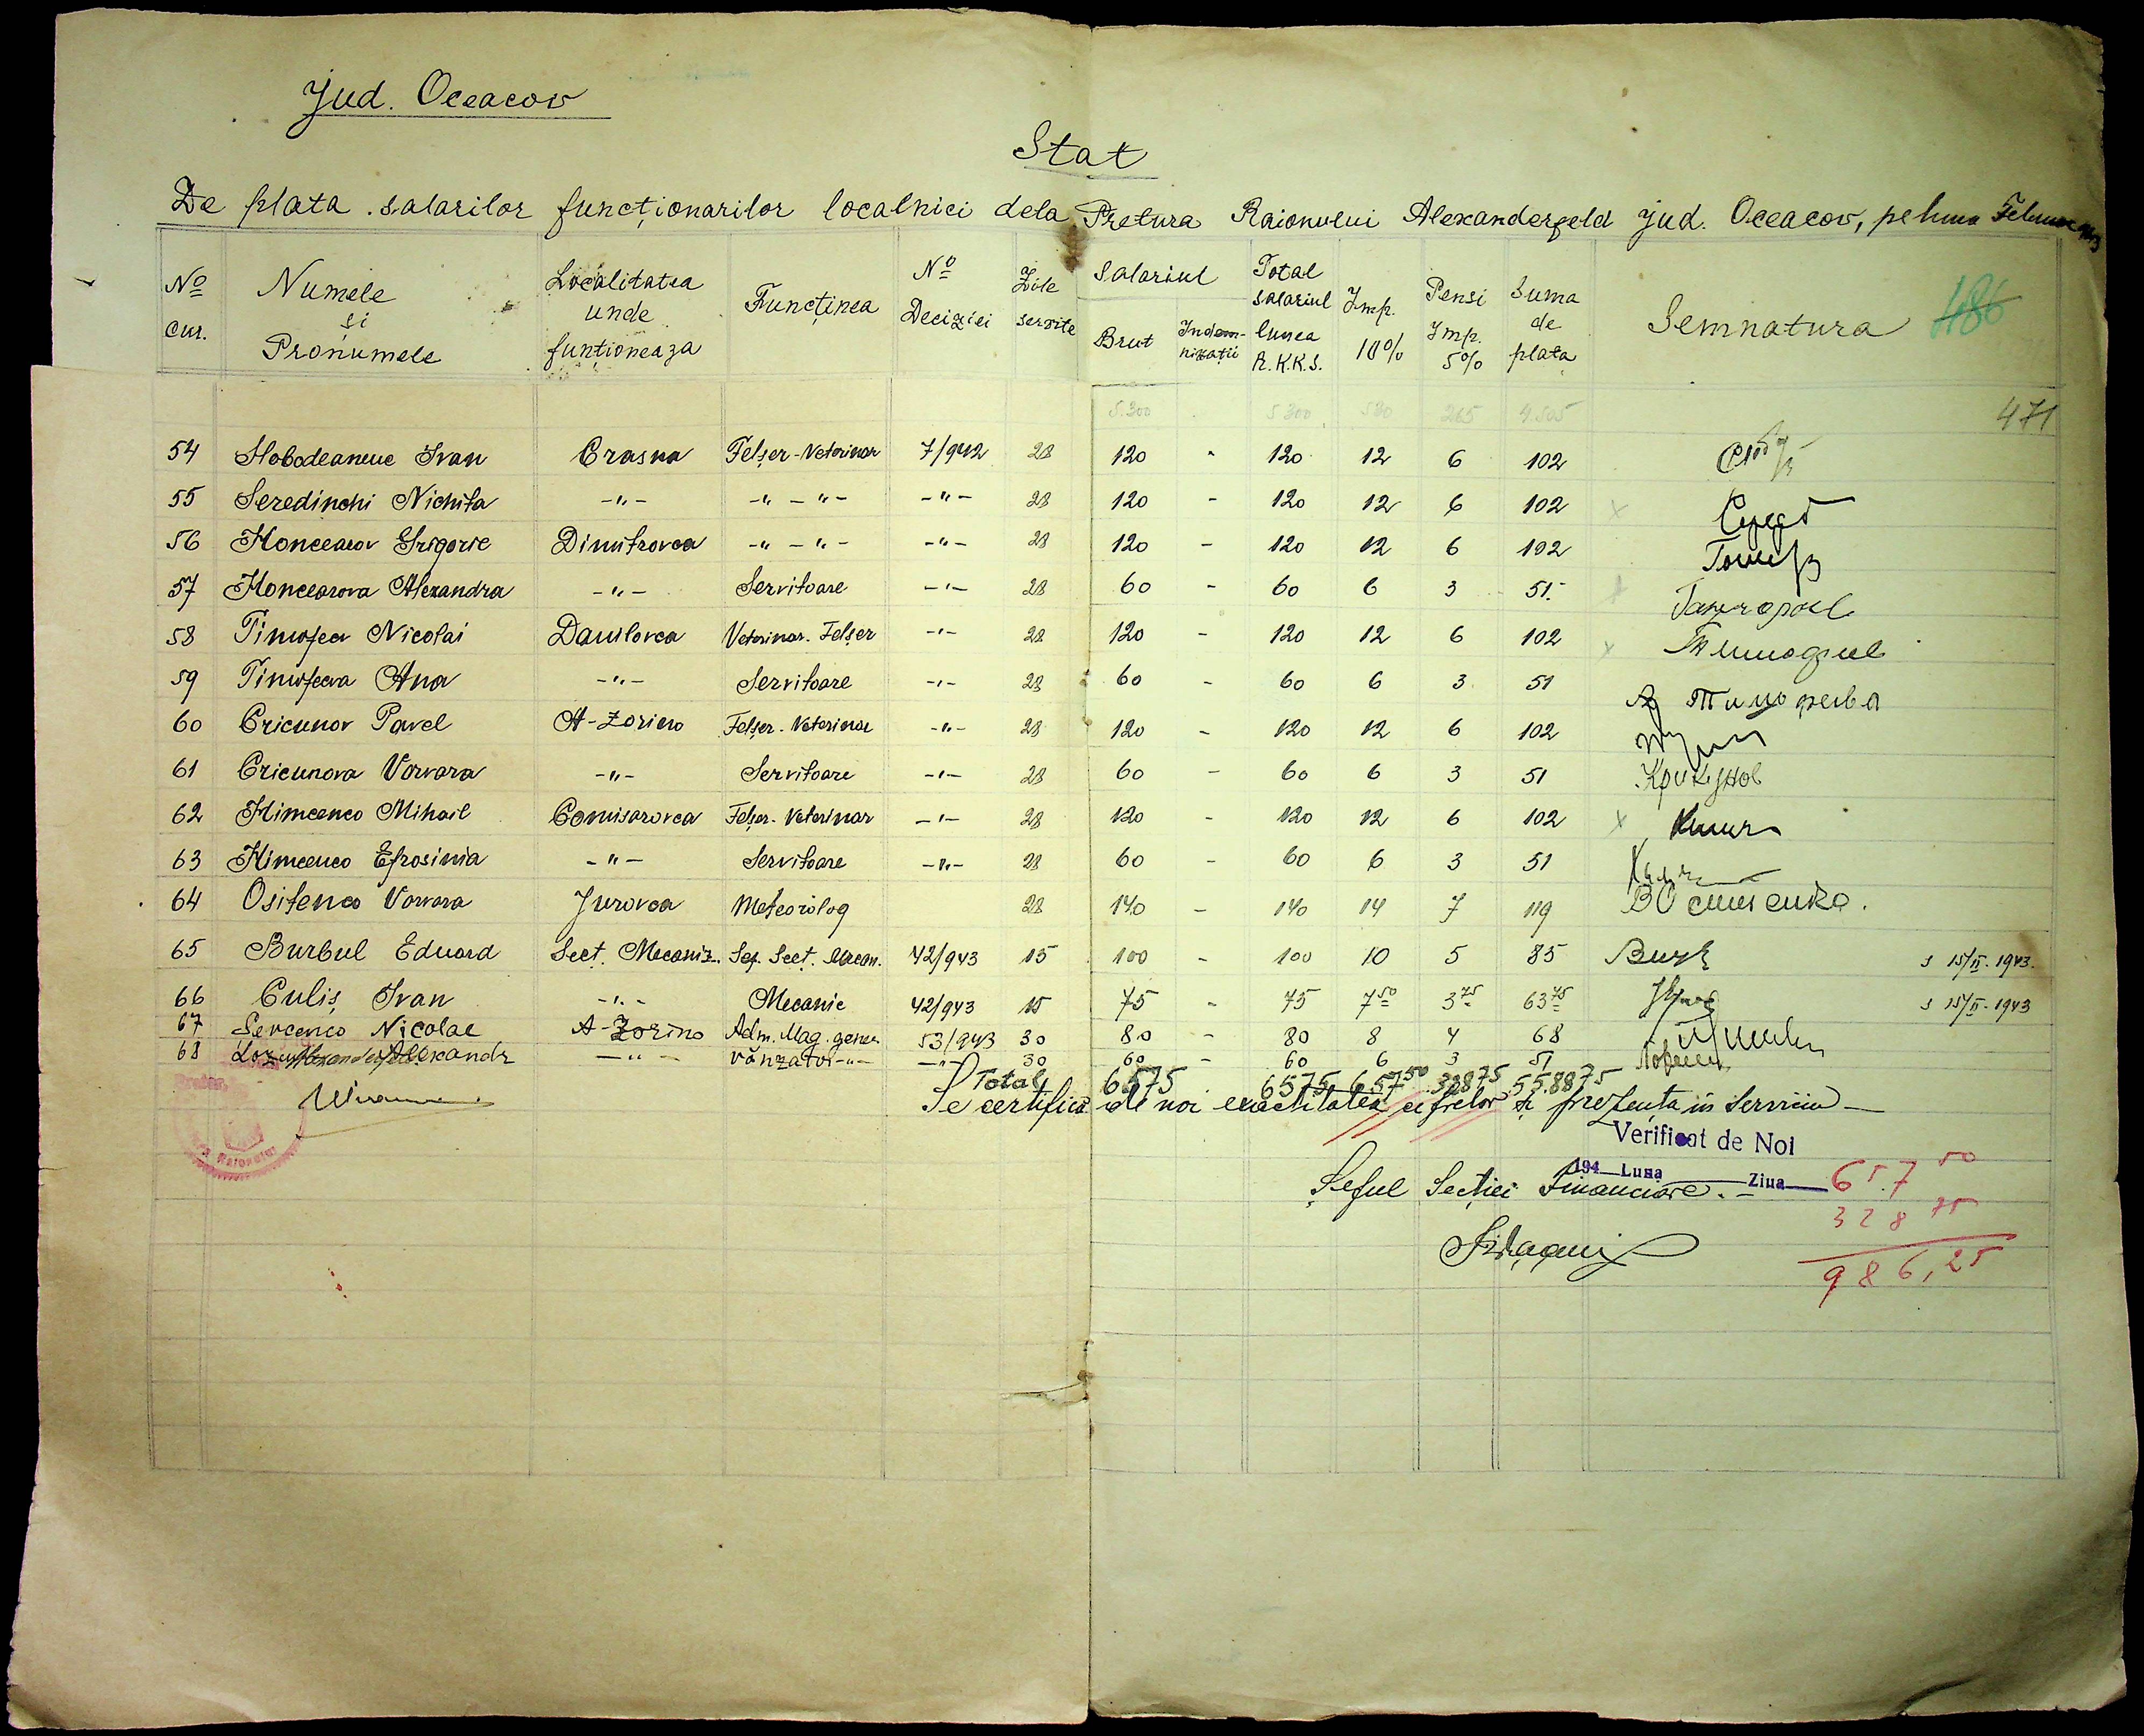 Jud. Oceacov
Stat
De plata salarilor funcționarilor localnici dela Pretura Raionului Alexanderfeld jud. Oceacov, pe luna
№ cur. Numele si Pronumele Localitatea unde funtioneaza Funcținea № Deciziei Zile servite Salariul Brut Indemnizații Total salariul lunea R.K.K.S. Imp. 10% Pensi Imp. 5% Suma de plata Semnatura 486
5.300 5300 530 265 4.505 471
54 Slobodeaneuc Ivan Crasna Felșer-Veterinar 7/942 28 120 - 120 12 6 102
55 Seredinchi Nichita -"- -"-"- -"- 28 120 - 120 12 6 102
56 Honcearov Grigorie Dimitrovca -"-"- -"- 28 120 - 120 12 6 102
57 Honcearova Alexandra -"- Servitoare -"- 28 60 - 60 6 3 51
58 Timofeev Nicolai Danilovca Veterinar. Felșer -"- 28 120 - 120 12 6 102
59 Timofeeva Ana -"- Servitoare -"- 28 60 - 60 6 3 51
60 Cricunov Pavel A-Zorino Felșer-Veterinar -"- 28 120 - 120 12 6 102
61 Cricunova Varvara -"- Servitoare -"- 28 60 - 60 6 3 51 Крикунов
62 Himcenco Mihail Comisarovca Felșer-Veterinar -"- 28 120 - 120 12 6 102
63 Himcenco Efrosinia -"- Servitoare -"- 28 60 - 60 6 3 51
64 Ositenco Varvara Jurovca Meteorolog 28 140 - 140 14 7 119
65 Burbul Eduard Secț. Mecaniz. Șef. Secț. Mecan. 42/943 15 100 - 100 10 5 85 15/II-1943.
66 Culiș Ivan -"- Mecanic 42/943 15 75 - 75 7 50 3 75 63 75 15/II-1943
67 Sevcenco Nicolae A-Zorino Adm. Mag. gener. 53/943 30 80 - 80 8 4 68
68 Alexandr -"- vânzator -"- -"- 30 60 - 60 6 3 51
Total 6575 6575 657 50 328 75 5588 75
Se certifică de noi exactitatea cifrelor și prezența in serviciu
Verificat de Noi
194 Luna Ziua
Șeful Secției Financiare.
657 50
328 75
986,25